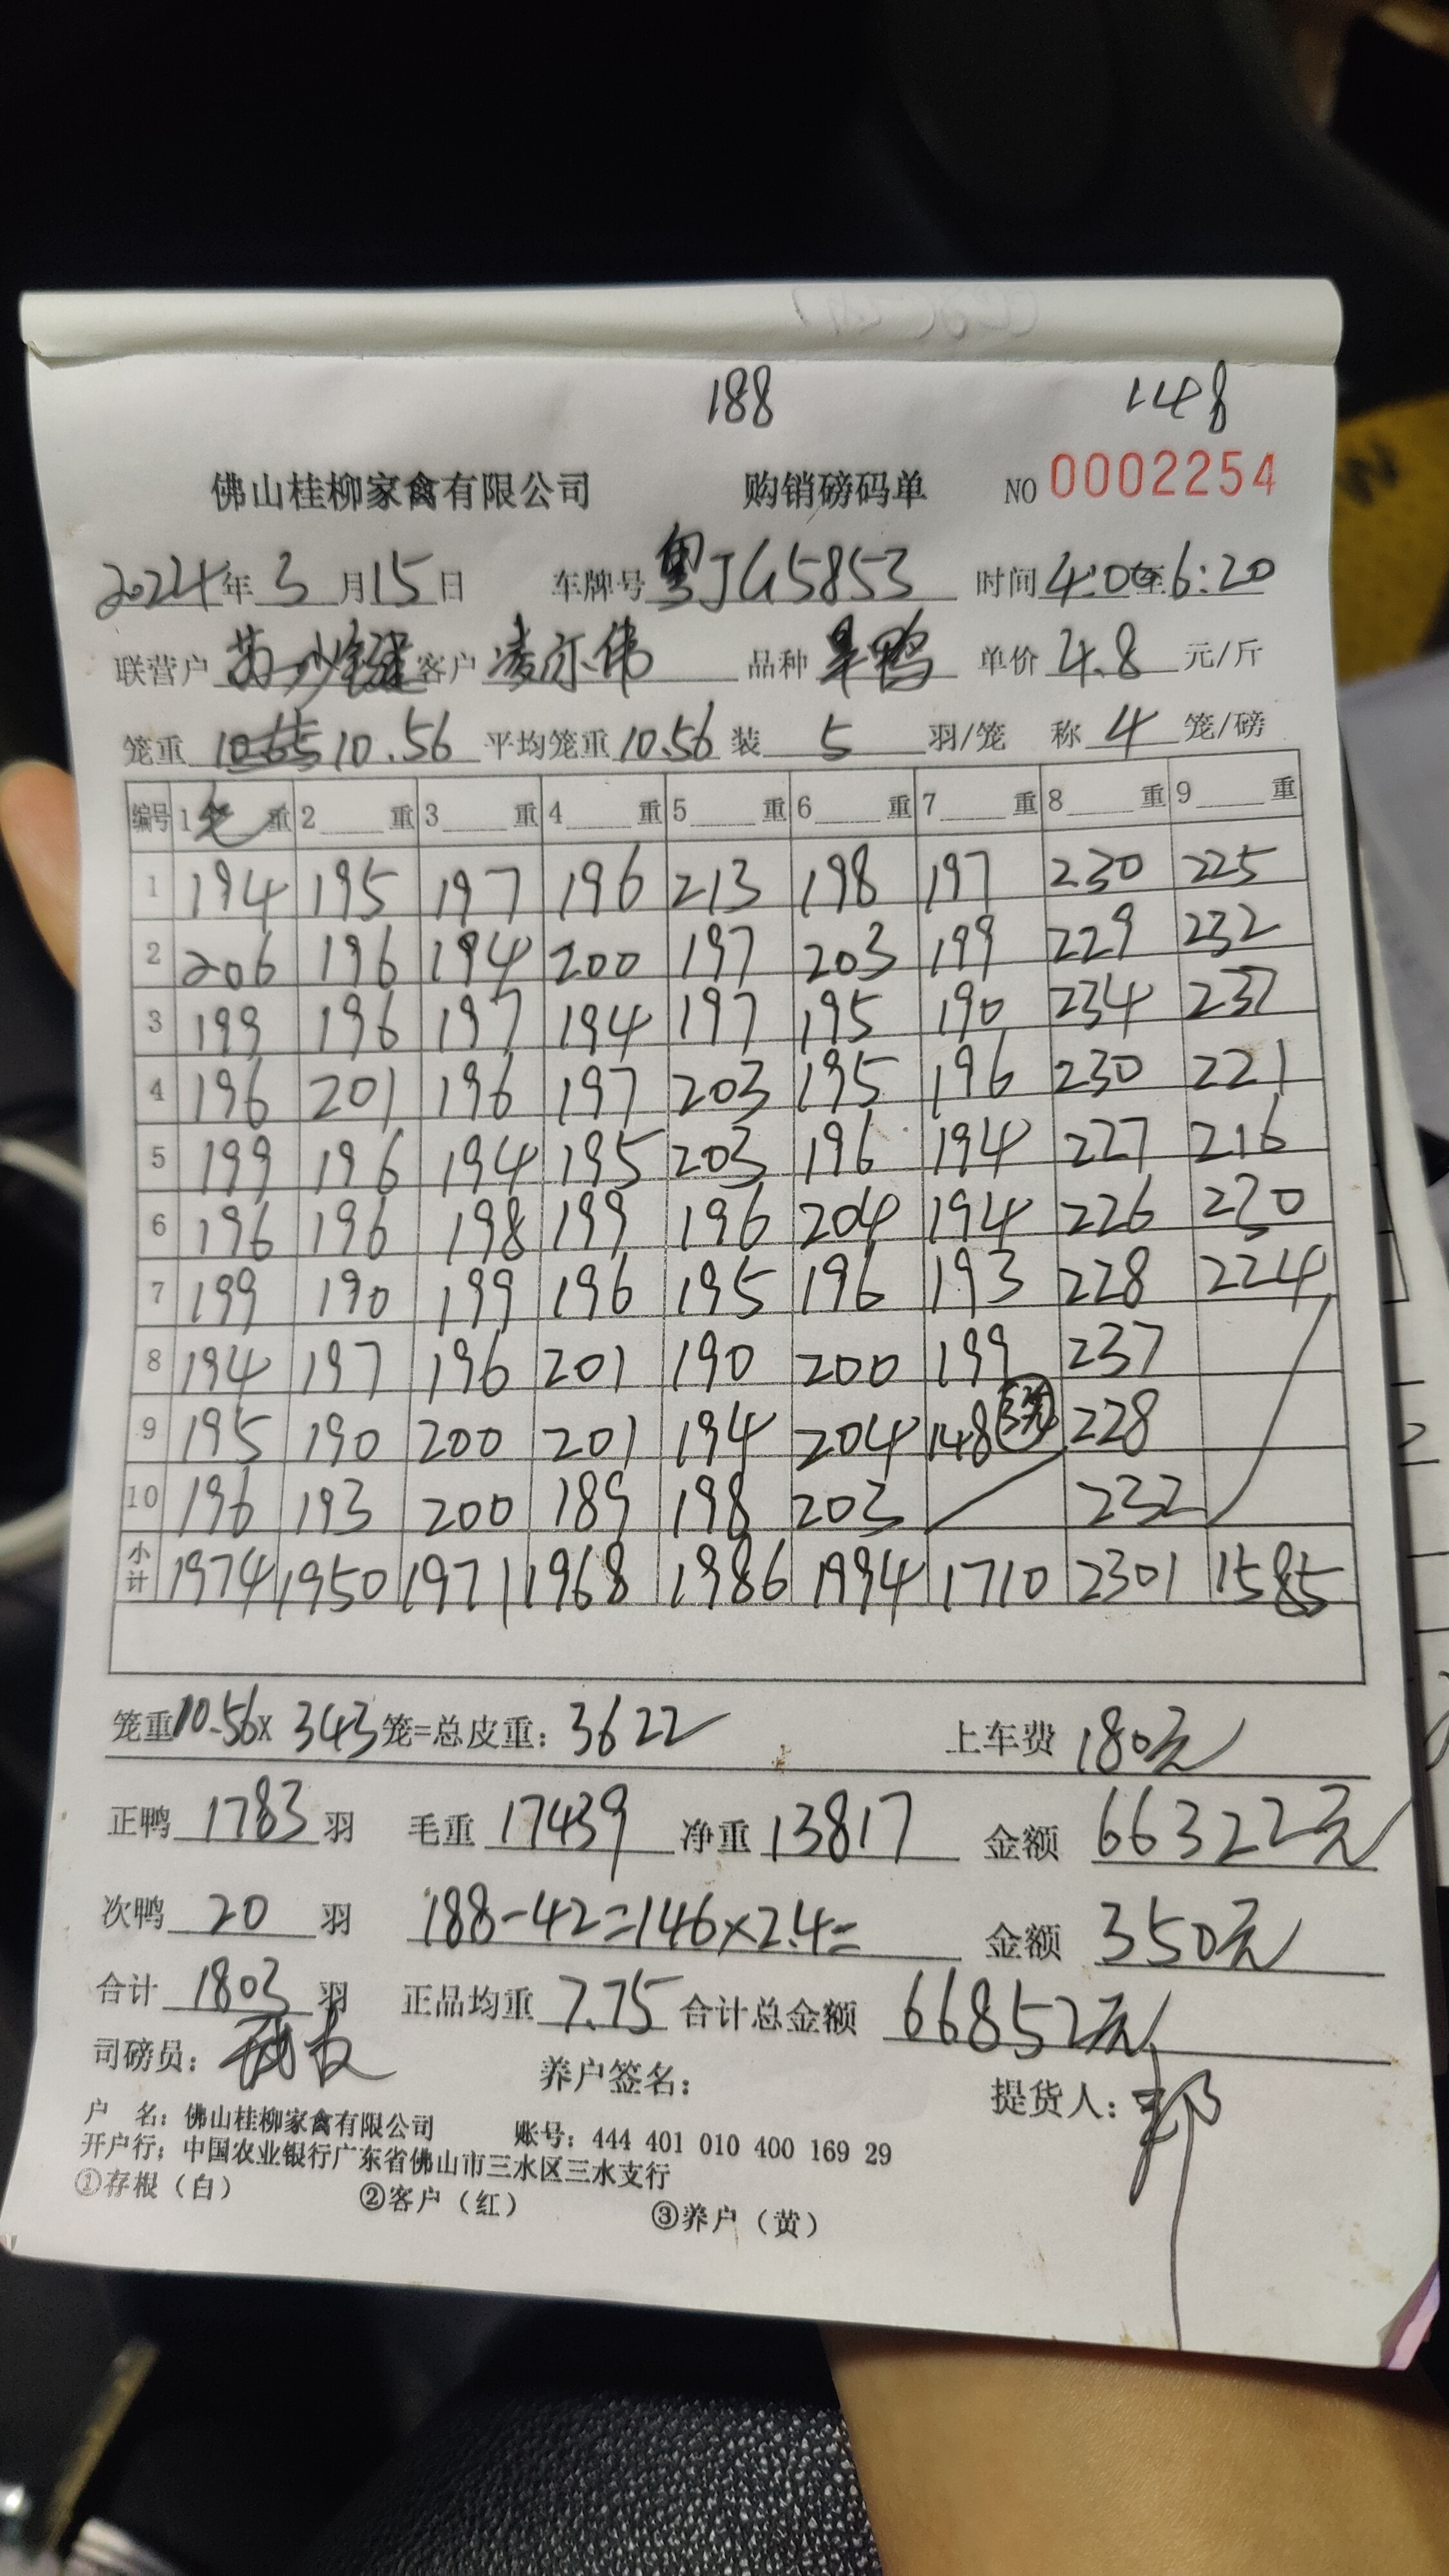 188 148
佛山桂柳家禽有限公司 购销磅码单 NO 0002254
2024年 3 月 15 日 车牌号 粤JG5853 时间 4:00至6:20
联营户 客户 凌亦伟 品种 旱鸭 单价 4.8 元/斤
笼重 10.65 10.56 平均笼重 10.56 装 5 羽/笼 称 4 笼/磅
编号 1 毛 重 2 重 3 重 4 重 5 重 6 重 7 重 8 重 9 重
1 194 195 197 196 213 198 197 230 225
2 206 196 194 200 197 203 199 229 232
3 199 196 197 194 197 195 190 234 237
4 196 201 196 197 203 195 196 230 221
5 199 196 194 195 203 196 194 227 216
6 196 196 198 199 196 204 194 226 230
7 199 190 199 196 195 196 193 228 224
8 194 197 196 201 190 200 199 237
9 195 190 200 201 194 204 148 3笼 228
10 196 193 200 189 198 203 232
小计 1974 1950 1971 1968 1986 1994 1710 2301 1585
笼重 10.56 x 343 笼=总皮重: 3622 上车费 180元
正鸭 1783 羽 毛重 17439 净重 13817 金额 66322元
次鸭 20 羽 188-42=146×2.4= 金额 350元
合计 1803 羽 正品均重 7.75 合计总金额 66852元
司磅员: 养户签名: 提货人: 邦
户 名: 佛山桂柳家禽有限公司 账号: 444 401 010 400 169 29
开户行: 中国农业银行广东省佛山市三水区三水支行
①存根（白） ②客户（红） ③养户（黄）